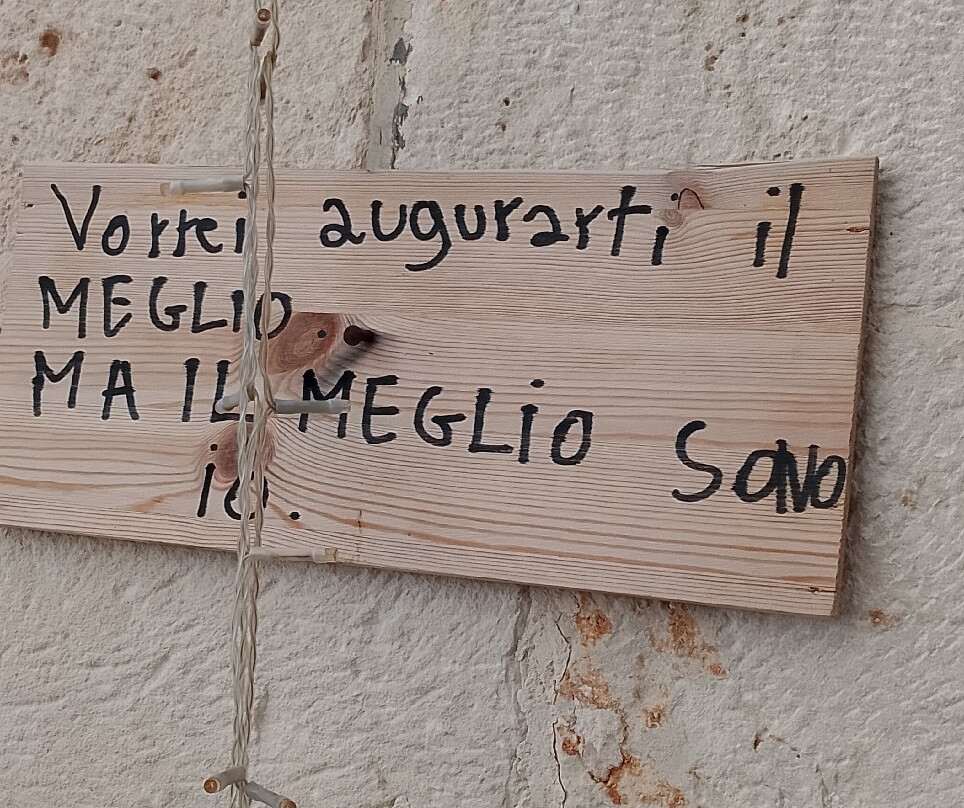 Vorrei augurarti il
MEGLIO
MA IL MEGLiO SONO
io.